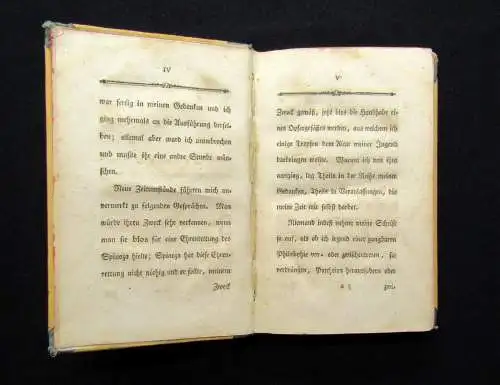 IV
war fertig in meinen Gedanken und ich
ging mehrmals an die Ausführung dersel-
ben; allemal aber ward ich unterbrochen
und mußte ihr eine andre Stunde wün-
schen.
Mein Zeitumstände führen mich un-
vermerkt zu folgenden Gesprächen. Man
würde ihren Zweck sehr verkennen, wenn
man sie blos für eine Ehrenrettung des
Spinoza hielte; Spinoza hat diese Ehren-
rettung nicht nöthig und er sollte, meinem
Zweck
V
Zweck gemäß, jetzt blos die Handhabe ei-
nes Opfergefäßes werden, aus welchem ich
einige Tropfen dem Altar meiner Jugend
darbringen wollte. Warum ich von ihm
anfing, lag Theils in der Reihe meiner
Gedanken, Theils in Veranlassungen, die
meine Zeit mir selbst darbot.
Niemand indeß nehme meine Schrift
so auf, als ob ich irgend eine gangbare
Philosophie ver- oder
verdrängen, Partheien herausfodern oder
zwi-